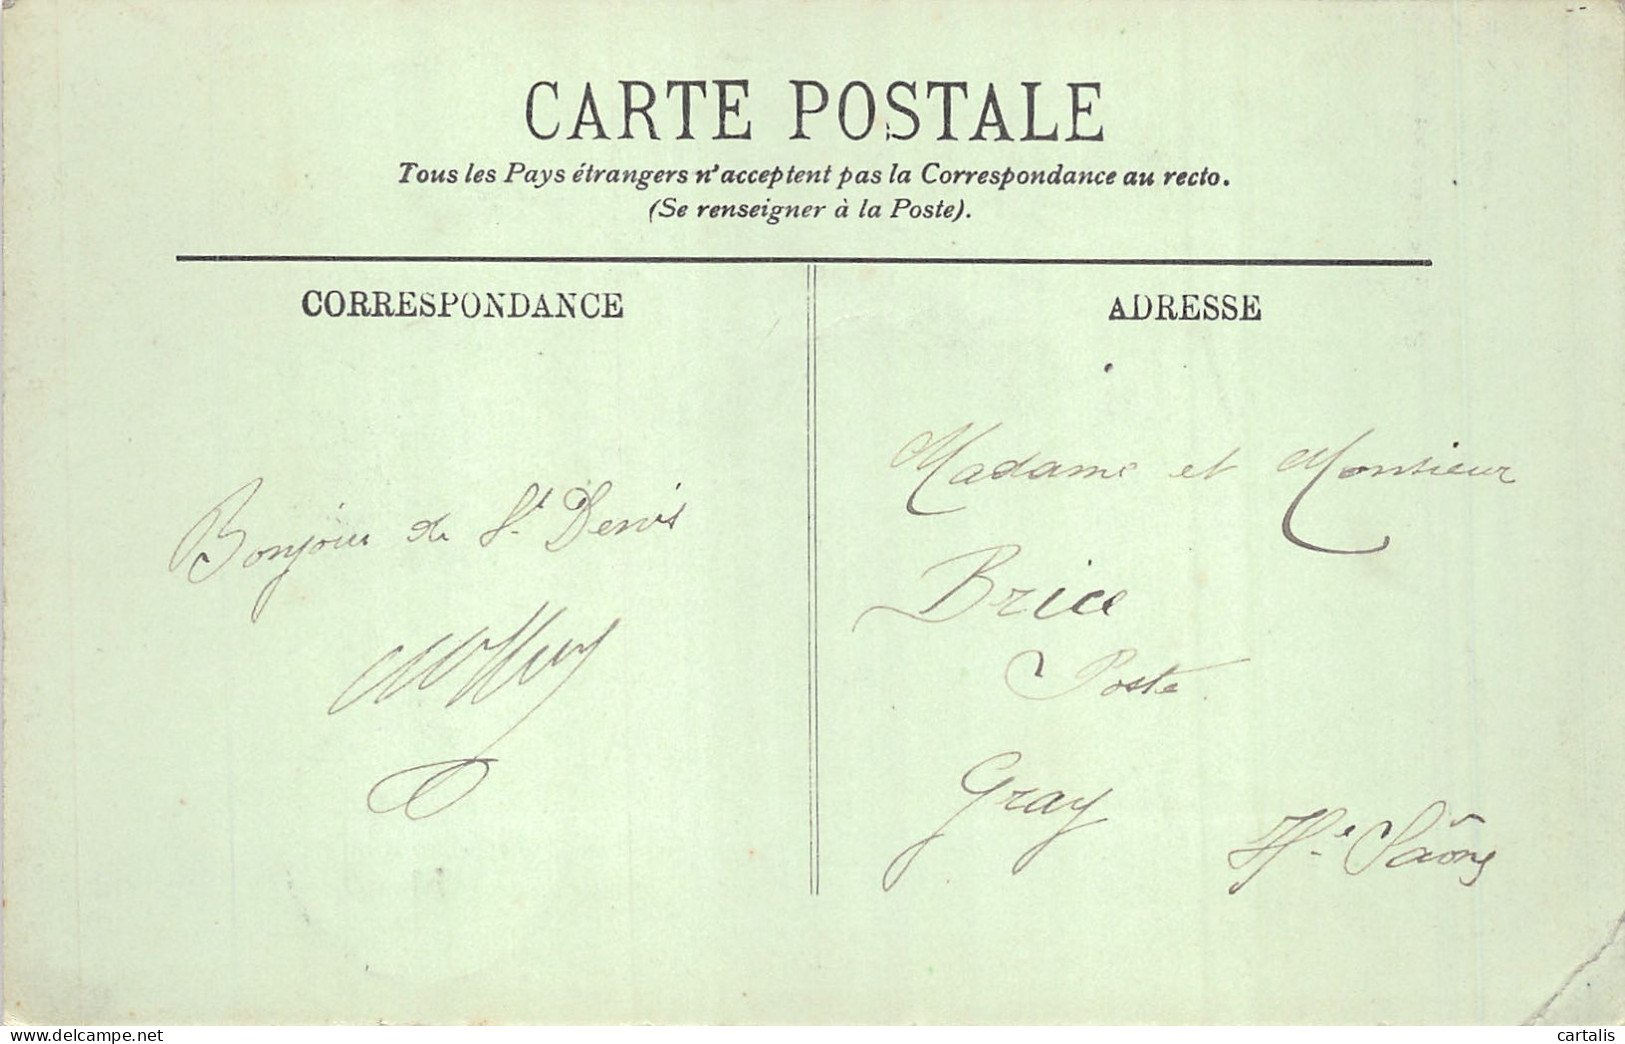 CARTE POSTALE
Tous les Pays étrangers n'acceptent pas la Correspondance au recto.
(Se renseigner à la Poste).
CORRESPONDANCE
Bonjour de St Denis
ADRESSE
Madame et Monsieur
Brice
Poste
Gray
Hte Saône
cartalis
www.delcampe.net